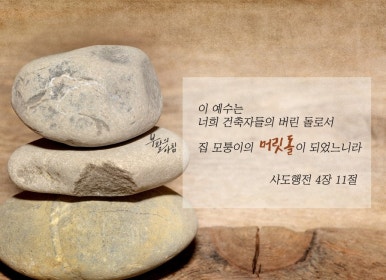 이 예수는
너희 건축자들의 버린 돌로서
집 모퉁이의 머릿돌이 되었느니라
사도행전 4장 11절
부활의
아침